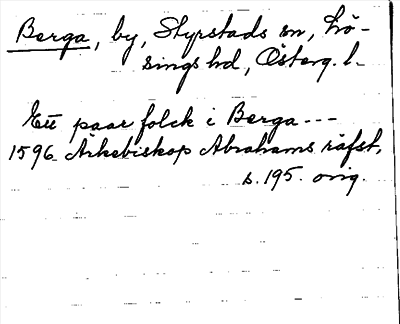 Berga, by, Styrstads sn, Lö-
sings hd, Österg. l.
Ett paar folck i Berga ---
1596. Ärkebiskop Abrahams räfst,
s. 195. orig.